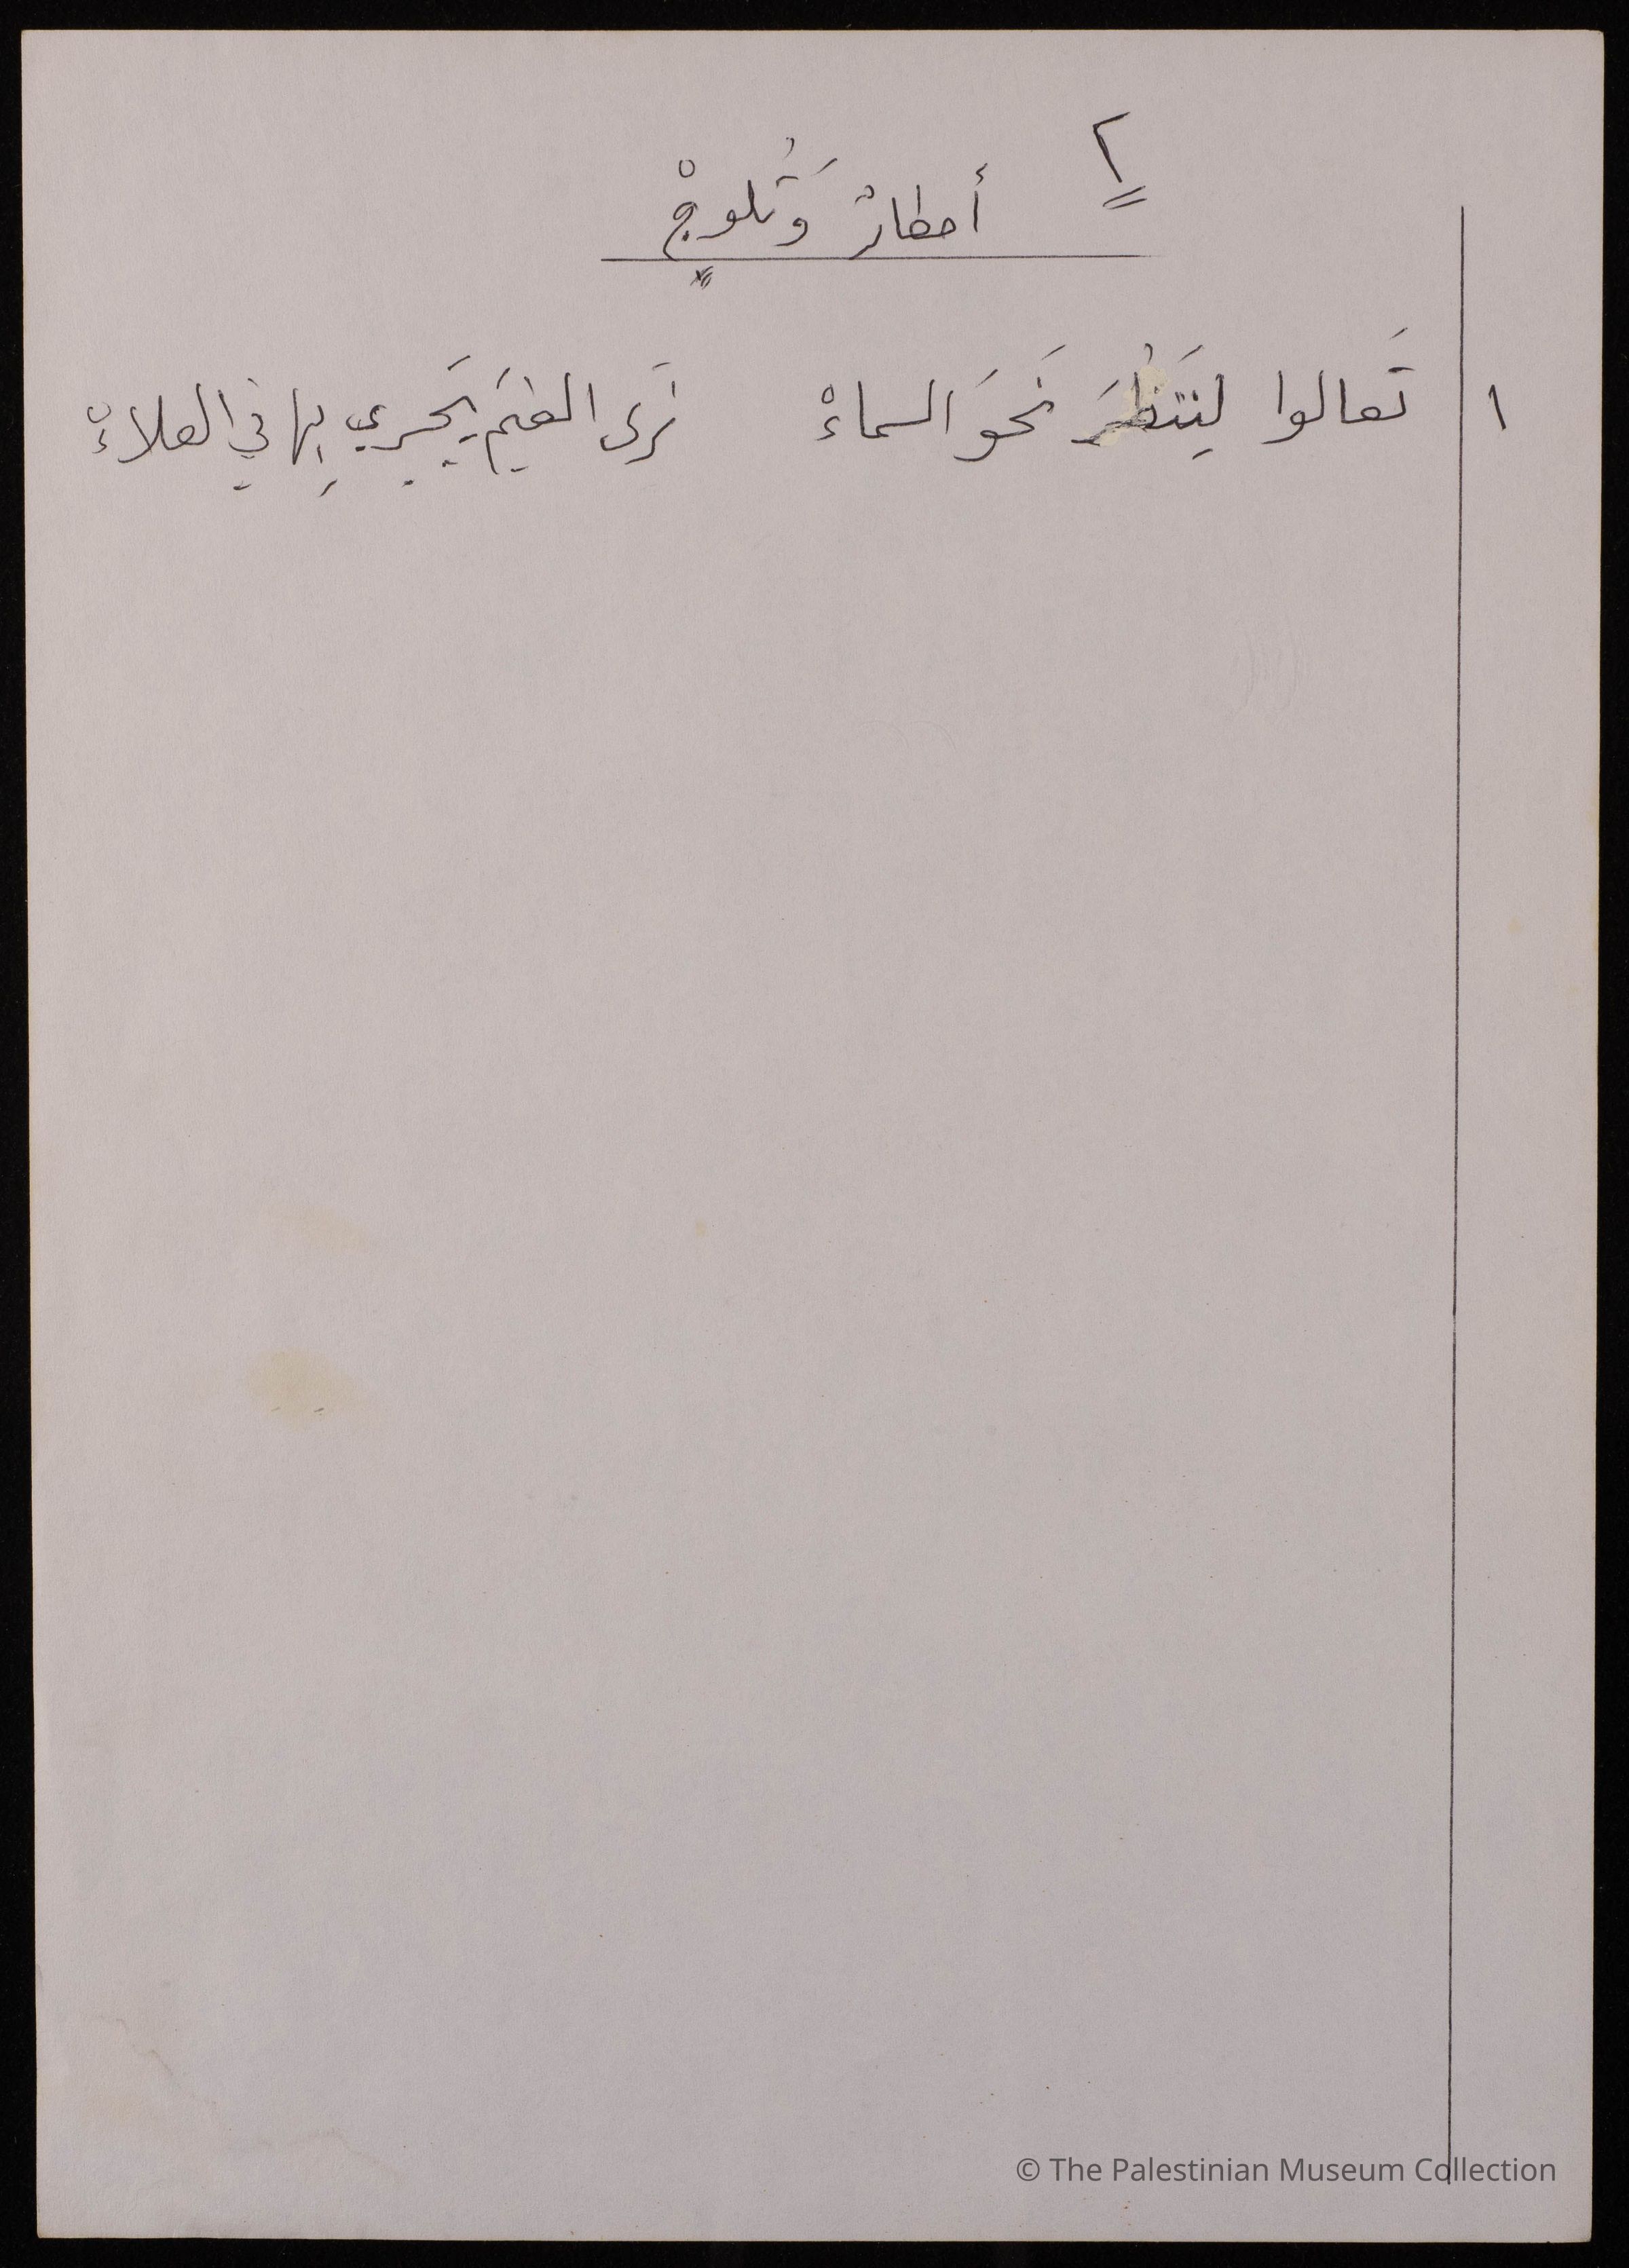 ٢
أمطارٌ وَثُلوجْ
١ تَعالوا لِنَنظُرَ نَحوَ السماءْ نَرى الغيَم يَجري بِها في العلاءْ
© The Palestinian Museum Collection